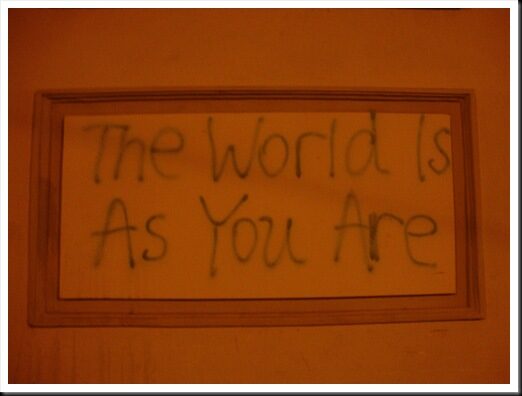 The World Is
As You Are